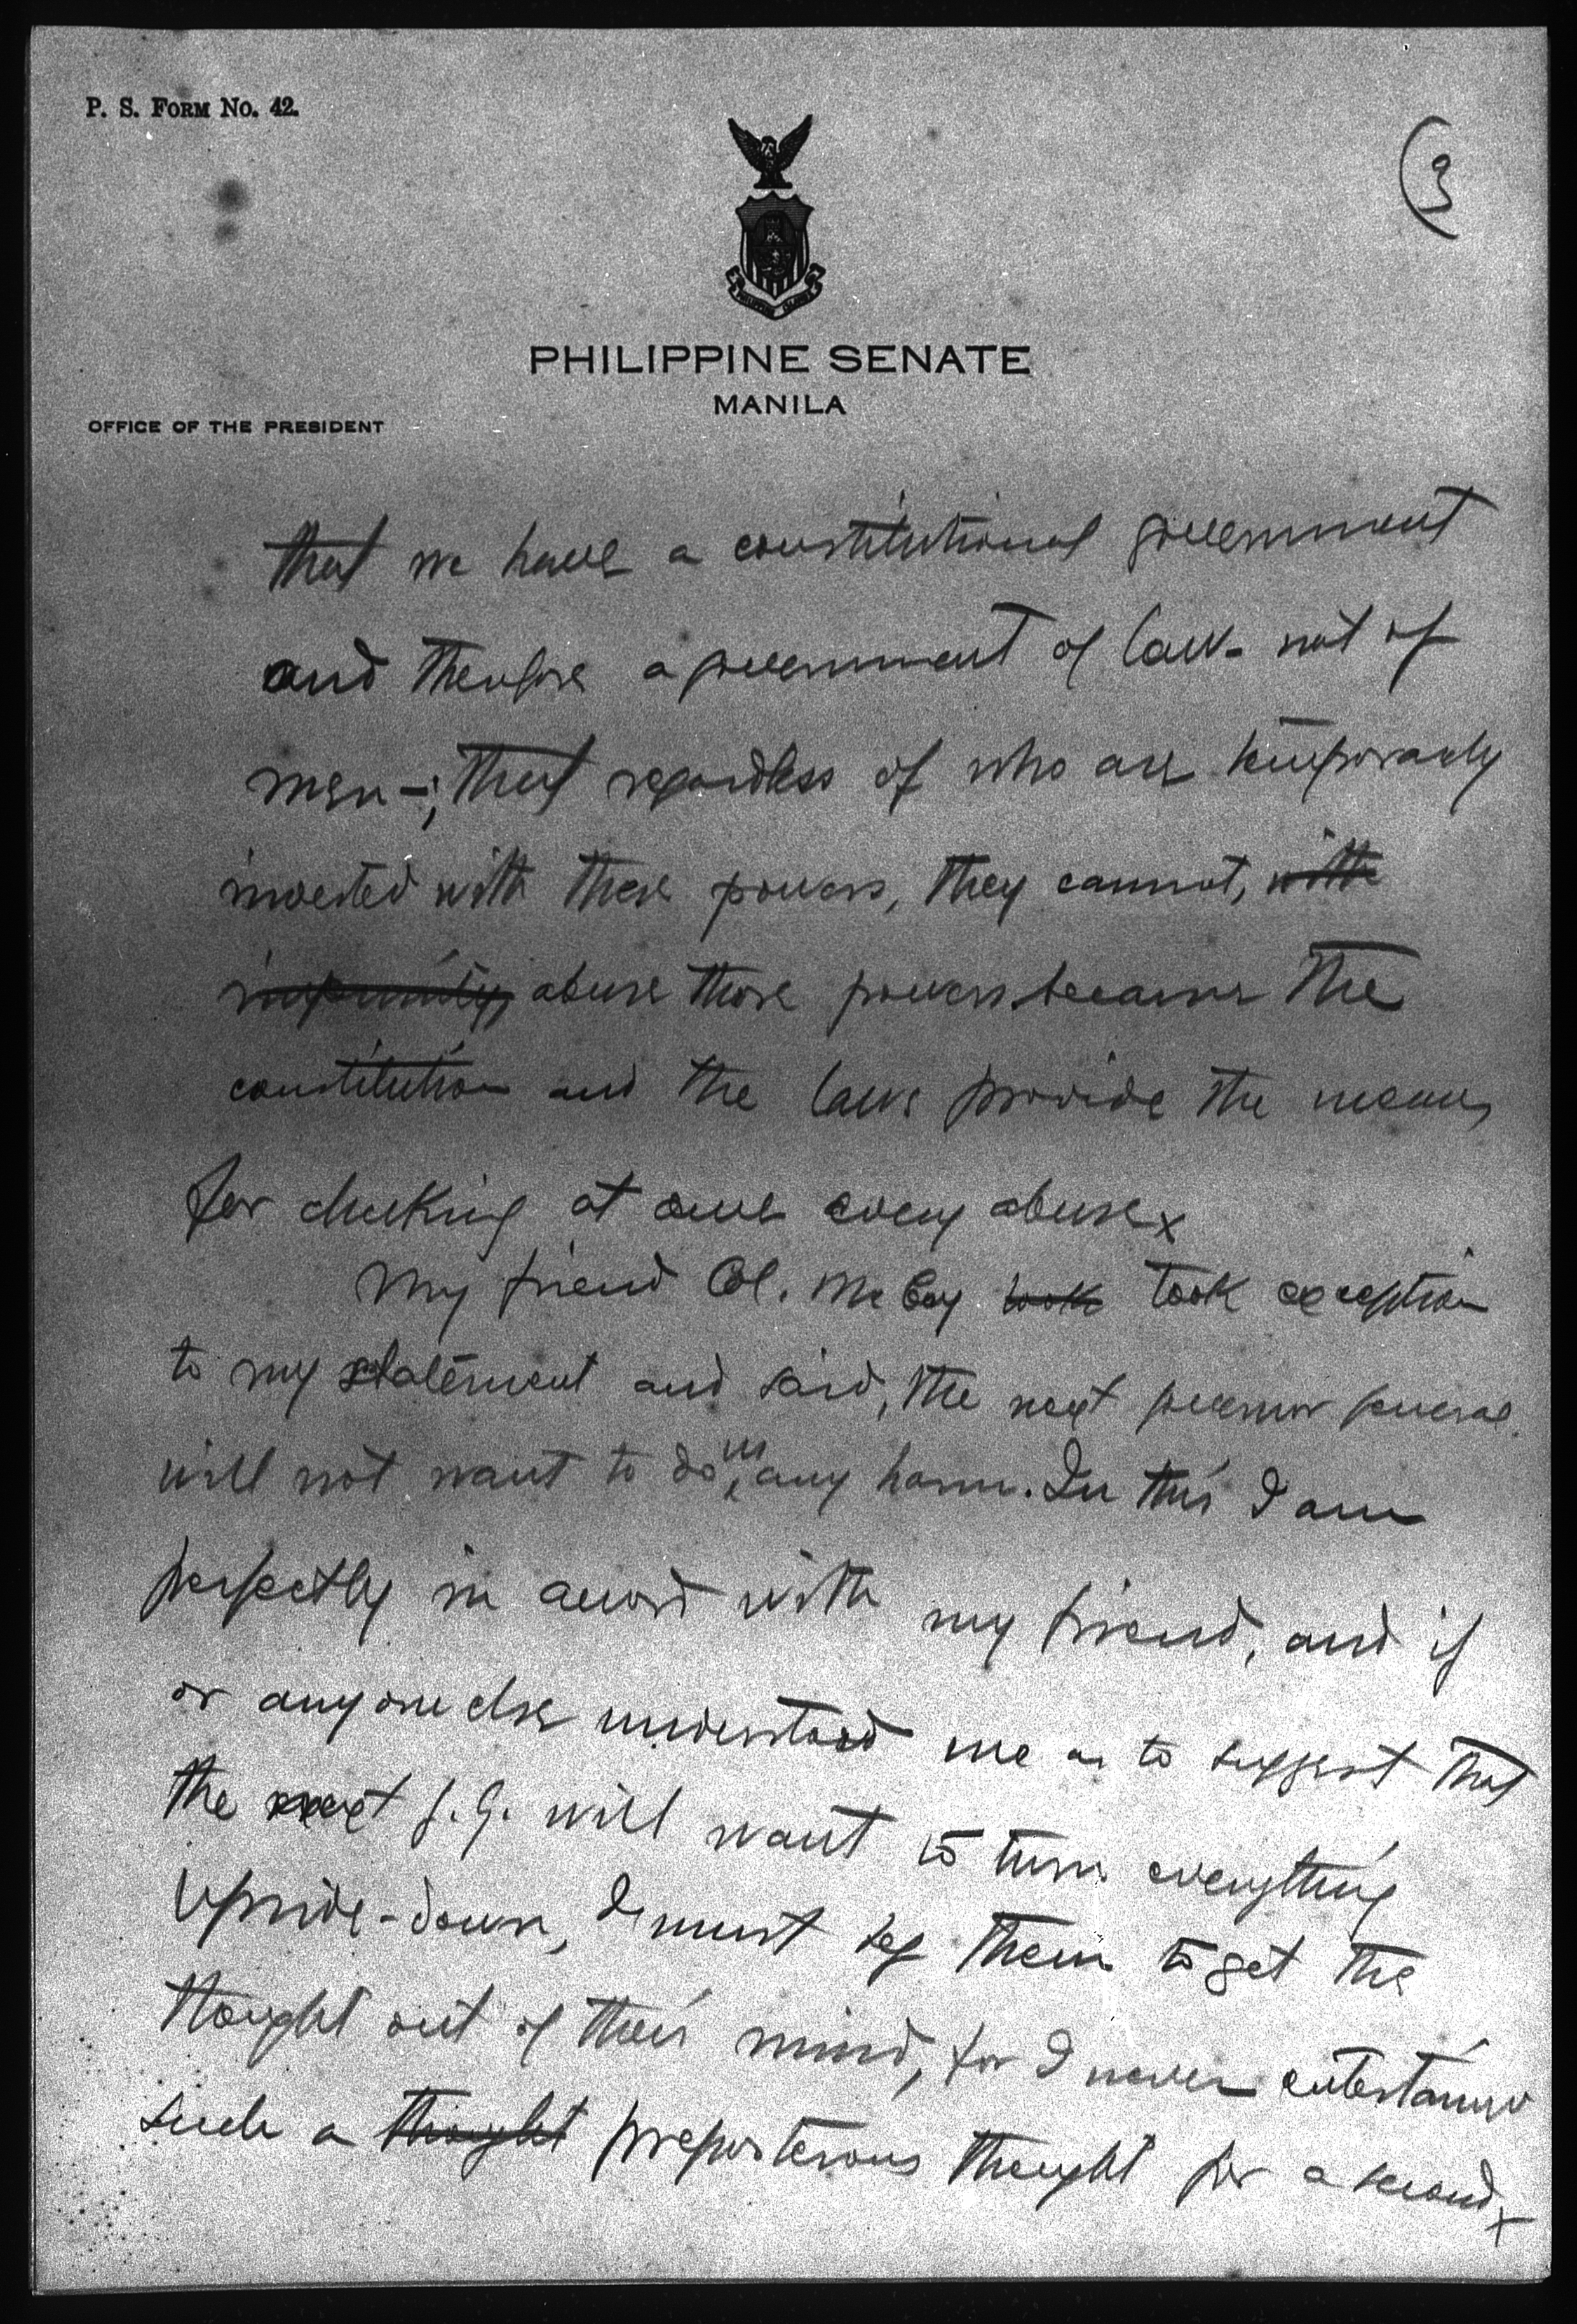 P. S. FORM No. 42.
(3
PHILIPPINE SENATE
MANILA
OFFICE OF THE PRESIDENT
that we have a constitutional government
and therefore a government of law - not of
men -; that regardless of who are temporarily
invested with these powers, they cannot, with
impunity, abuse those powers because the
constitution and the laws provide the means
for checking at once every abuse x
My friend Col. McCoy took took exception
to my statement and said, the next governor general
will not want to do us any harm. In this I am
perfectly in accord with my friend, and if
or anyone else understood me as to suggest that
the next g.g. will want to turn everything
upside-down, I must beg them to get the
thought out of their mind, for I never entertained
such a thought preposterous thought for a second x